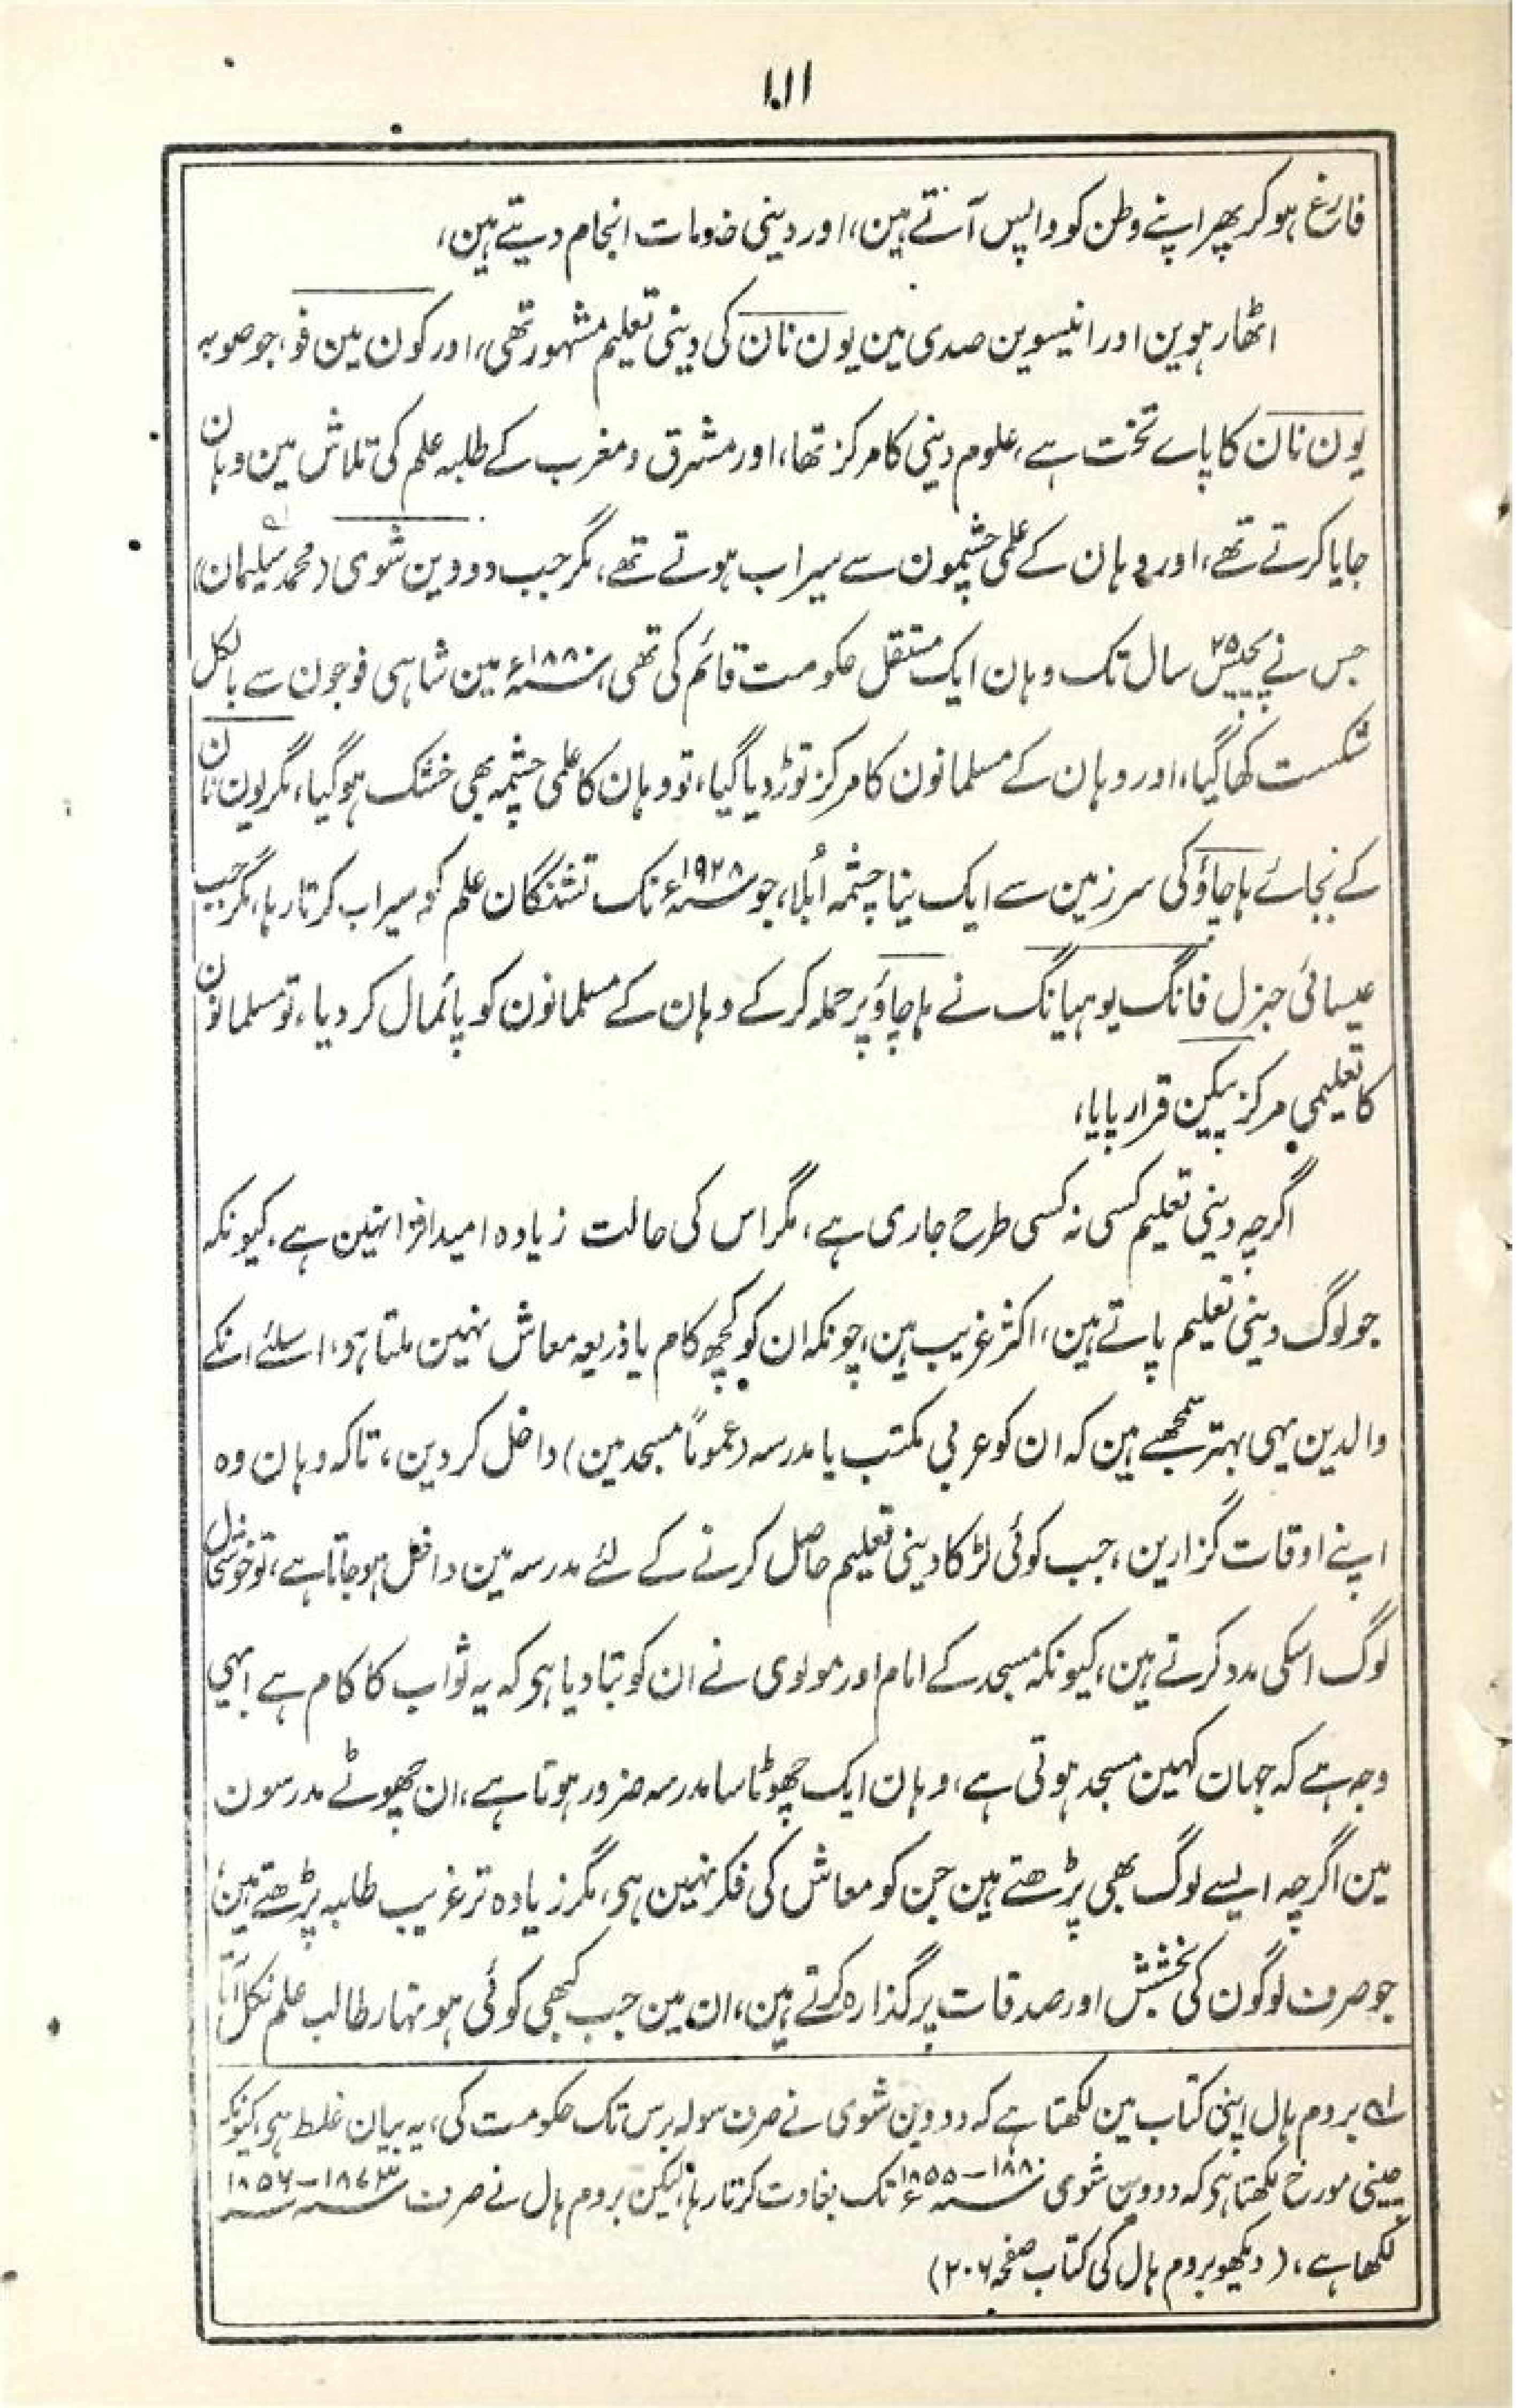 ۱۰۱
فارغ ہوکر پھر اپنے وطن کو واپس آتے ہین، اور دینی خدمات انجام دیتے ہین،
اٹھارہوین اور انیسوین صدی مین یون نان کی دینی تعلیم مشہور تھی، اور کون مین فو، جو صوبہ
یون نان کا پاے تخت ہے، علوم دینی کا مرکز تھا، اور مشرق و مغرب کے طلبہ علم کی تلاش مین وہان
جایا کرتے تھے، اور وہان کے علمی چشمون سے سیراب ہوتے تھے، مگر جب دو وین شوی (محمد سلیمان)لہ
جس نے پچیس ۲۵ سال تک وہان ایک مستقل حکومت قائم کی تھی، ۱۸۸۰ء مین شاہی فوجون سے بالکل
شکست کھا گیا، اور وہان کے مسلمانون کا مرکز توڑ دیا گیا، تو وہان کا علمی چشمہ بھی خشک ہوگیا، مگر یون نان
کے بجائے ہاچاؤ کی سرزمین سے ایک نیا چشمہ اُبلا، جو ۱۹۲۸ء تک تشنگان علم کو سیراب کرتا رہا، مگر جب
عیسائی جنرل فانگ یو ہیانگ نے ہاچاؤ پر حملہ کرکے وہان کے مسلمانون کو پائمال کر دیا، تو مسلمانون
کا تعلیمی مرکز پیکین قرار پایا،
اگرچہ دینی تعلیم کسی نہ کسی طرح جاری ہے، مگر اس کی حالت زیادہ امید افزا نہین ہے، کیونکہ
جو لوگ دینی تعلیم پاتے ہین، اکثر غریب ہین، چونکہ ان کو کچھ کام یا ذریعہ معاش نہین ملتا ہو، اسلئے انکے
والدین یہی بہتر سمجھتے ہین کہ ان کو عربی مکتب یا مدرسہ (عموماً مسجد مین) داخل کر دین، تاکہ وہان وہ
اپنے اوقات گزارین، جب کوئی لڑکا دینی تعلیم حاصل کرنے کے لئے مدرسہ مین داخل ہوجاتا ہے، تو خوشحال
لوگ اسکی مدد کرتے ہین، کیونکہ مسجد کے امام اور مولوی نے ان کو بتا دیا ہی کہ یہ ثواب کا کام ہے، یہی
وجہ ہے کہ جہان کہین مسجد ہوتی ہے، وہان ایک چھوٹا سا مدرسہ ضرور ہوتا ہے، ان چھوٹے مدرسون
مین اگرچہ ایسے لوگ بھی پڑھتے ہین جن کو معاش کی فکر نہین ہی، مگر زیادہ تر غریب طلبہ پڑھتے ہین،
جو صرف لوگون کی بخشش اور صدقات پر گذارہ کرتے ہین، ان مین جب کبھی کوئی ہونہار طالب علم نکل آتا
لہ بروم ہال اپنی کتاب مین لکھتا ہے کہ دو وین شوی نے صرف سولہ برس تک حکومت کی، یہ بیان غلط ہی، کیونکہ
چینی مورخ لکھتا ہی کہ دو وین شوی ۱۸۵۵ – ۱۸۸۰ء تک بغاوت کرتا رہا، لیکن بروم ہال نے صرف ۱۸۵۶ – ۱۸۷۳
لکھا ہے، (دیکھو بروم ہال کی کتاب صفحہ ۲۰۶)